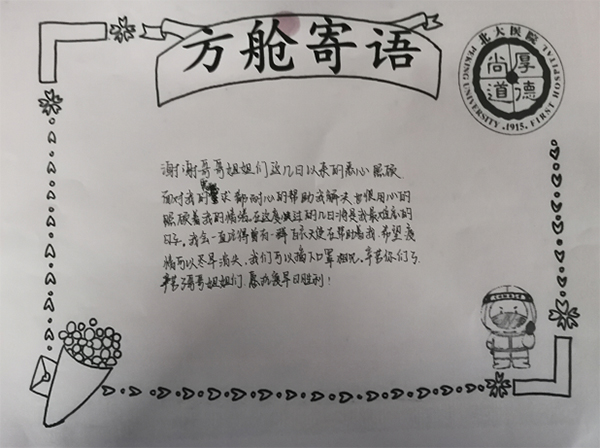 方舱寄语
北大医院
PEKING UNIVERSITY FIRST HOSPITAL
·1915·
厚德尚道
谢谢哥哥姐姐们这几日以来的悉心照顾
面对我的需求都耐心的帮助我解决 也很用心的
照顾着我的情绪。在这度过的几日将是我最难忘的
日子。我会一直记得曾有一群白衣天使在帮助着我。希望疫
情可以尽早消失,我们可以摘下口罩相见。辛苦你们了
辛苦了哥哥姐姐们 愿战疫早日胜利!